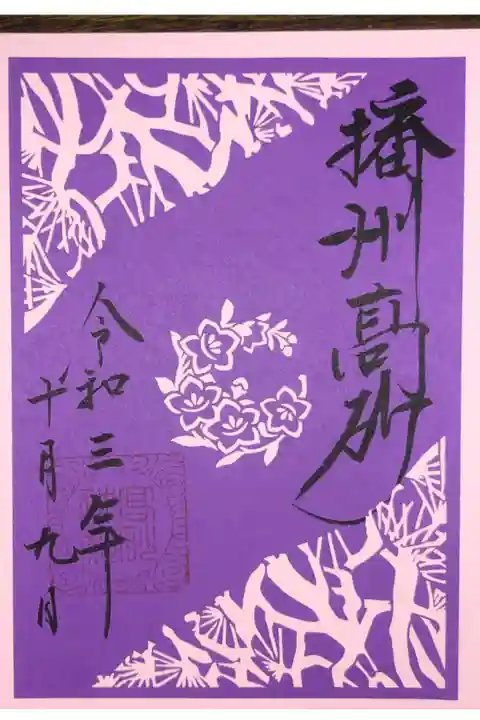 播州高砂
令和三年
十月九日